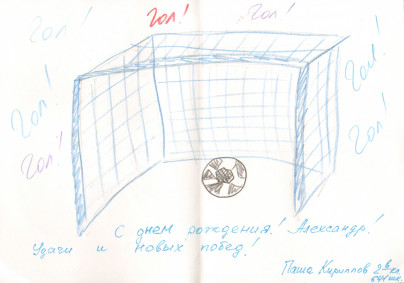 Гол! Гол! Гол!
Гол! Гол!
Гол! Гол!
Гол!
С днем рождения! Александр!
Удачи и новых побед!
Паша Кириллов 2 в кл.